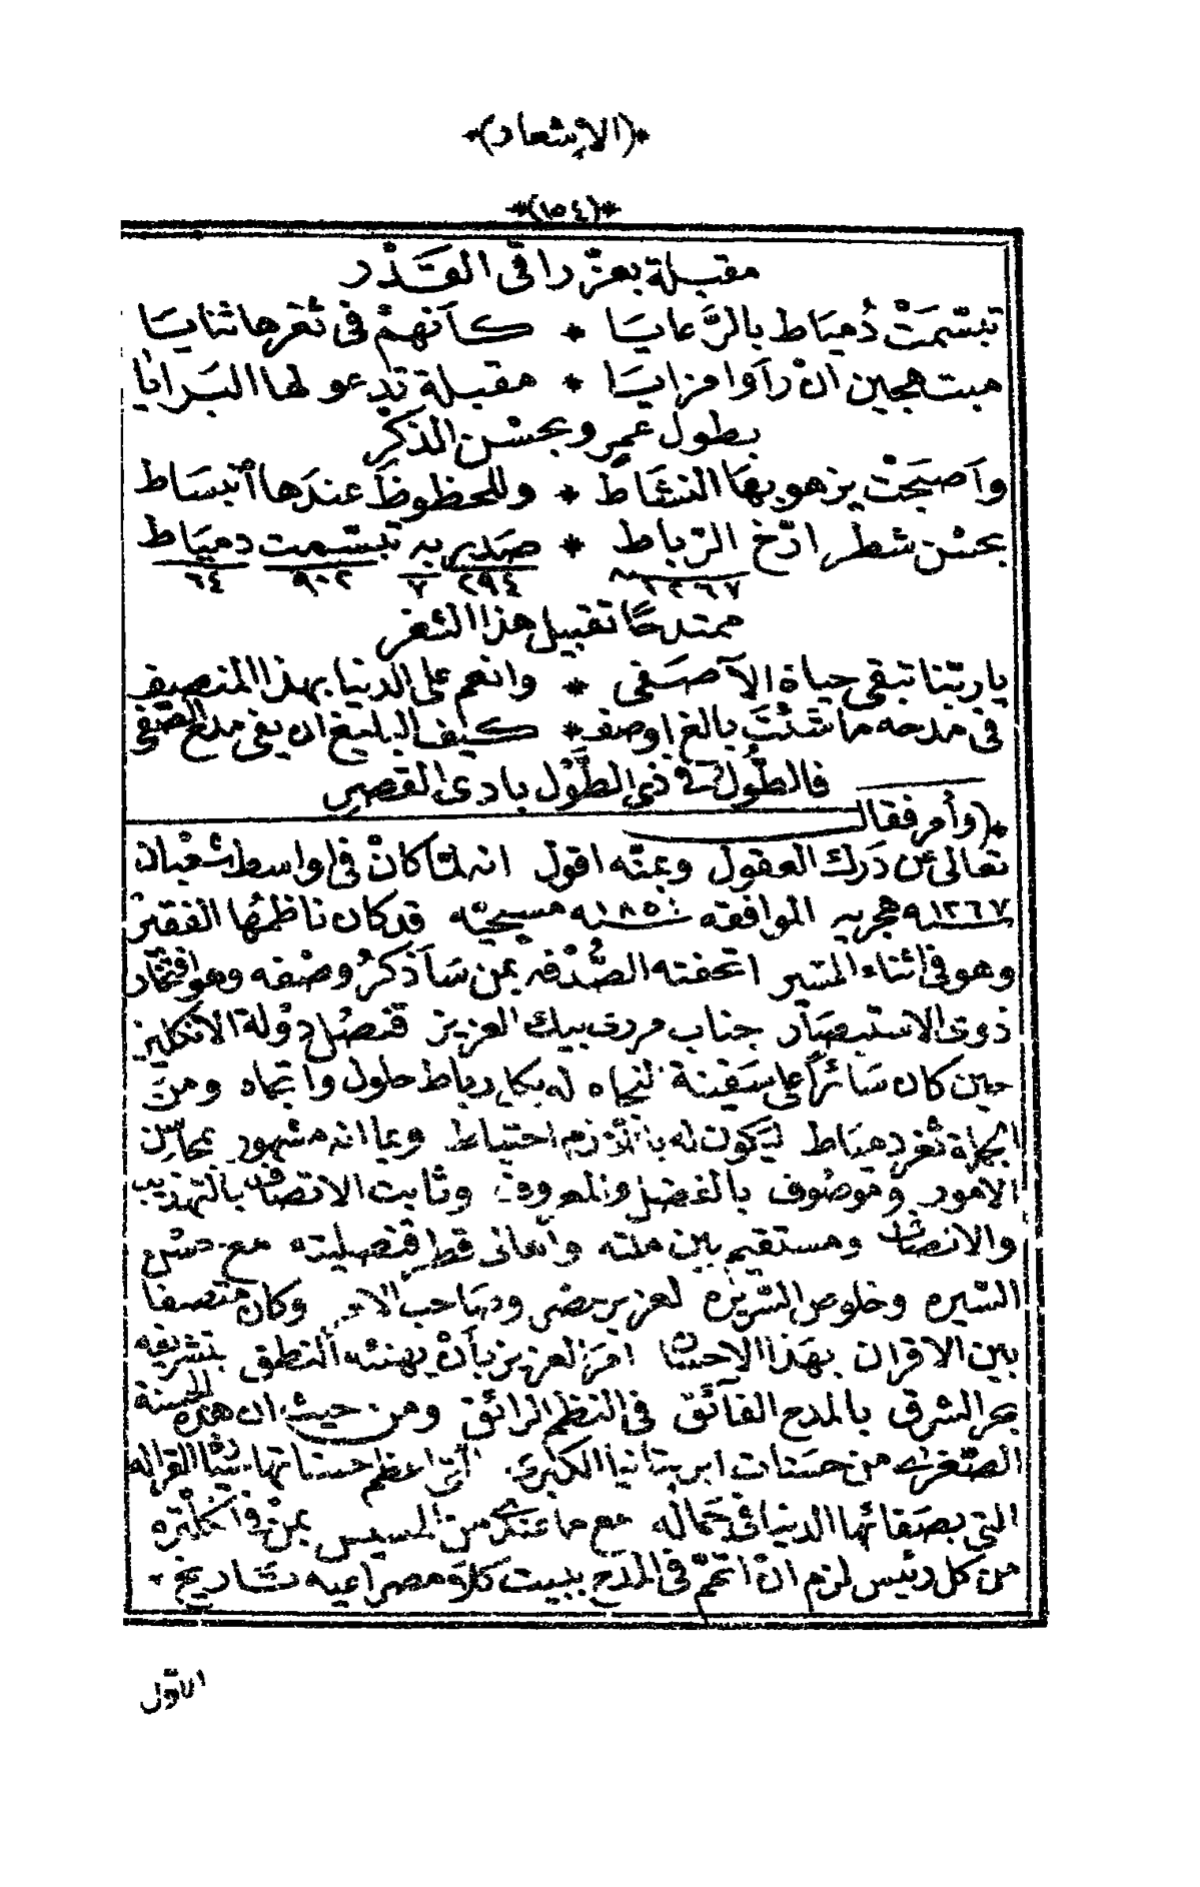 *(الإشعار)*
*(١٥٤)*
مقبلة بعزّ راقى القَدْر
تبسّمَتْ دُميَاط بالرَّعايَا * كأنهمْ فى ثغرها ثنايَا
مبتهجين انْ رأوا مزايَا * مقبلة تدعو لها البَرايَا
بطول عمر وبحسْن الذكْر
وأصبحَتْ يزهو بهَا النشَاط * وللحظوظَ عندَها أنبسَاط
بحسْن شطر ارّخ الرّباط * صَدير به تبسّمت دميَاط
١٢٦٧ ٢٩٤ ٧ ٩٠٢ ٦٤
ممتدحًا تقبيل هذا الثغر
يا ربّنا تبقى حياة الآصَفى * وانعم على الدنيا بهذا المنصف
فى مدحه ما شئتَ بالغ اوصف * كيف البليغ ان يفى مدح الصفى
فالطُّول فى ذى الطَّوْل بادى القصر
*(وأمر فقال
تعالى عن دَرك العقول وبمنّه اقول انه لمّا كانْ فى اواسط شعْبان
١٢٦٧ـه هجريه الموافقه ١٨٥٠ـه مسيحيّه قد كان ناظمُها الفقير
وهو فى اثناء المسير اتحفته الصُّدْفه بمن سَأذكرُ وصْفه وهو افتخار
ذوى الاستبصار جناب مرى بيك العزيز قنصُل دوْلة الانكليز
حين كان سَائرًا على سَفينة لنجاه له بكل رباط حلول واتجاه ومنَ
ثغر دميَاط ليَكون له احتياط وبما انه مشهور بمحاسن
الامور وموصُوف بالفضل والمعروف وثابت الاتصاف بالتهذيب
والانصاف ومستقيم بين ملته واهالى قطر قنصليته مع حسْن
السّيره وخلوص السّريره لعزيز مصر وصَاحب وكان متصفا
بين الاقران بهَذا الاحسان امرَ العزيز بأنْ يهنئه النطق بتشريفه
بحر الشرق بالمدح الفائق فى النظم الرائق ومن حيث ان هذه الحسنة
الصّغرى من حسَنات ابريتانيا الكبرى التى اعظم حسناتها
التى بصَفائها الدنيا فى جماله مع ما عندى من المسيس بمن فى انكلتره
من كل رئيس لزم انْ اتمّ فى المدح ببيت كلّ مصراعيه تاريخ *
الاوّل